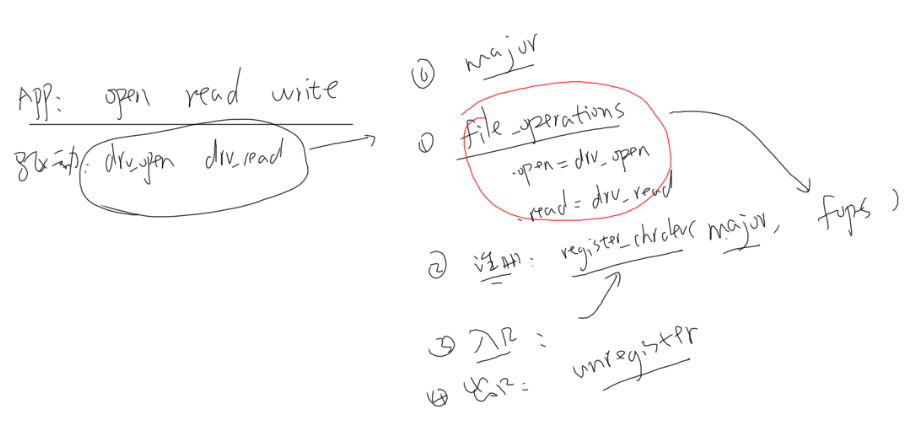 App: open read write
驱动: drv_open drv_read
⓪ major
① file_operations
.open = drv_open
.read = drv_read
② 注册: register_chrdev( major, fops )
③ 入口:
④ 出口: unregister